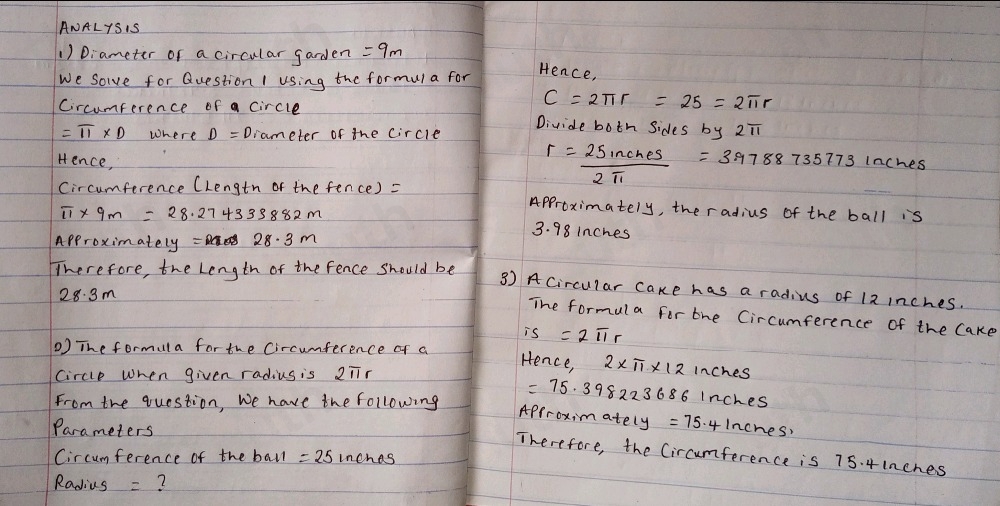 ANALYSIS
1) Diameter of a circular garden = 9m
We Solve for Question 1 using the formula for
Circumference of a circle
= π × D where D = Diameter of the circle
Hence,
Circumference (Length of the fence) =
π × 9m = 28.274333882m
Approximately = 28.3m
Therefore, the Length of the fence should be
28.3m
2) The formula for the circumference of a
Circle when given radius is 2πr
From the question, We have the following
Parameters
Circumference of the ball = 25 inches
Radius = ?
Hence,
C = 2πr = 25 = 2πr
Divide both sides by 2π
r = 25 inches = 39788735773 inches
2π
Approximately, the radius of the ball is
3.98 inches
3) A Circular cake has a radius of 12 inches.
The formula for the Circumference of the cake
is = 2πr
Hence, 2×π×12 inches
= 75.398223686 inches
Approximately = 75.4 inches.
Therefore, the Circumference is 75.4 inches